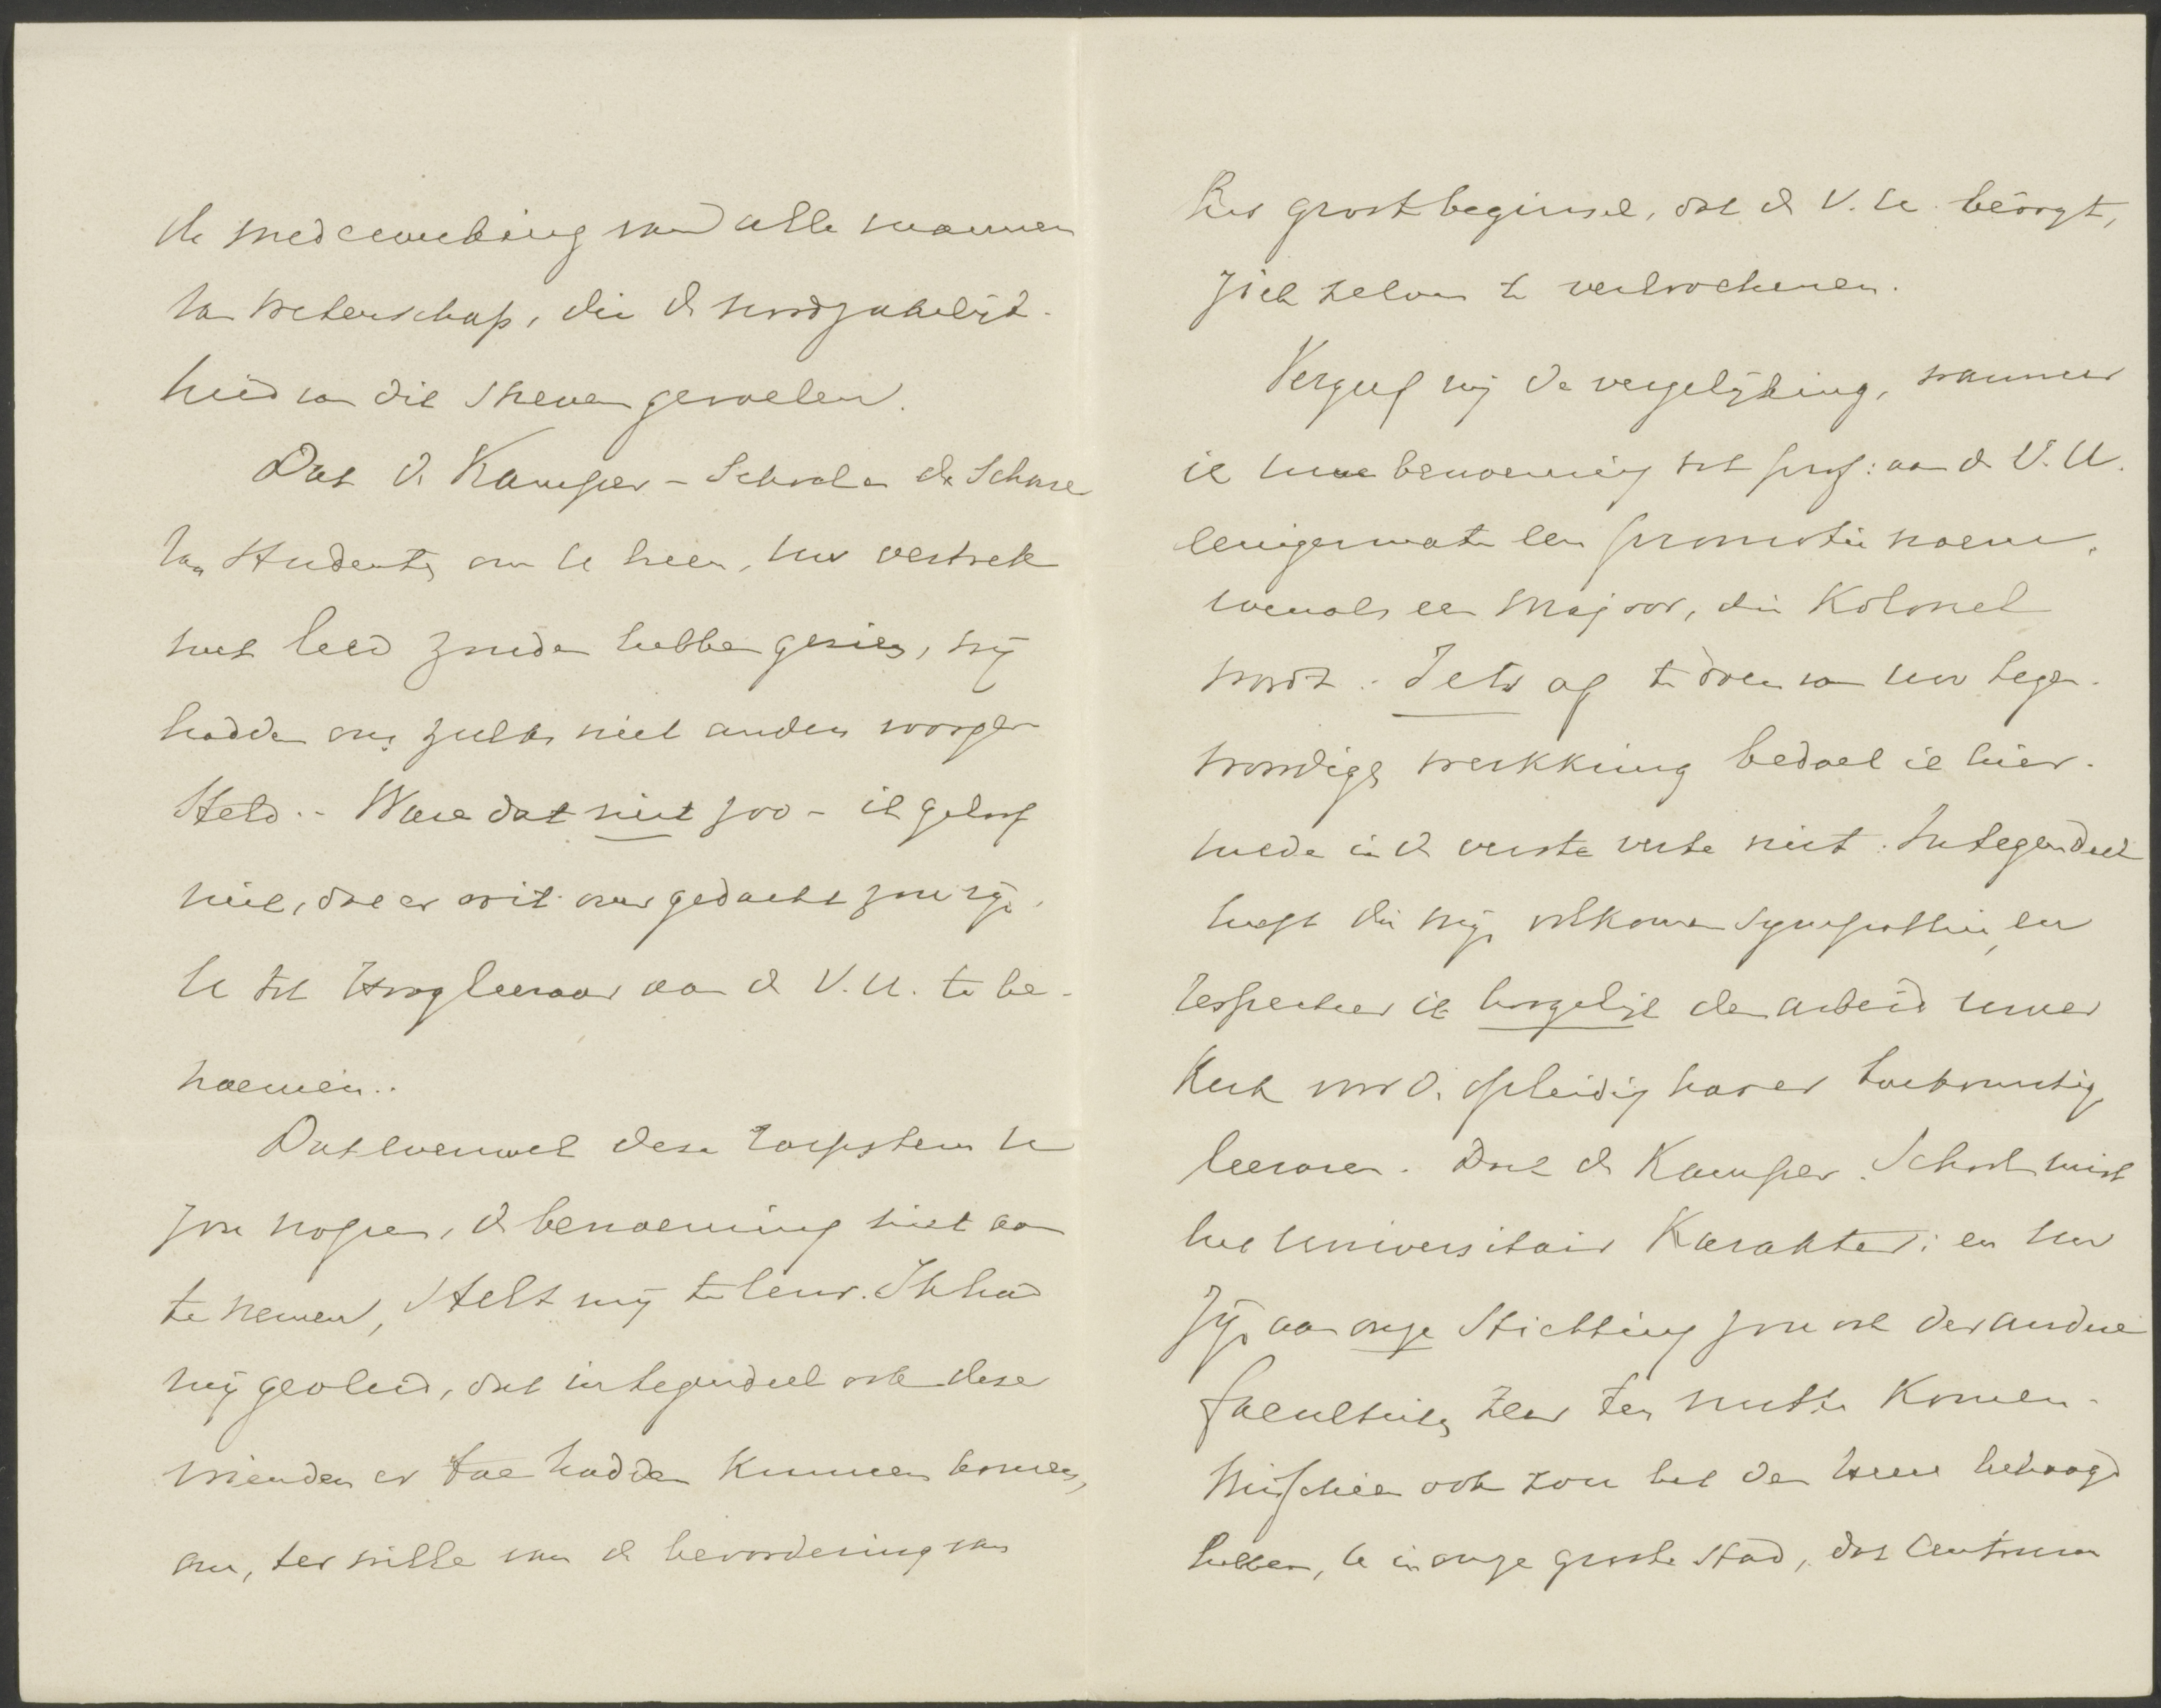 de medewerking van alle mannen
van wetenschap, die de noodzakelijk-
heid van dit streven gevoelen.
Dat de Kamper-School en de Schare
van Studenten om U heen, uw vertrek
met leed zouden hebben gezien, wij
hadden ons zulks niet anders voorge-
steld. - Ware dat niet zoo - ik geloof
niet, dat er ooit over gedacht zou zijn,
U tot Hoogleeraar aan de V.U. te be-
noemen..
Dat evenwel deze roepstem U
zou nopen, de benoeming niet aan
te nemen, stelt mij te leur. Ik had
mij gevleid, dat integendeel ook deze
vrienden er toe hadden kunnen komen,
om, ter wille van de bevordering van
het groot beginsel, dat de V.U. beoogt,
zich zelven te verloochenen.
Vergeef mij de vergelijking, wanneer
ik uwe benoeming tot prof: aan de V.U.
eenigermate een promotie noem,
evenals een Majoor, die Kolonel
wordt. Iets af te doen van uw tegen-
woordige werkkring bedoel ik hier-
mede in de verste verte niet. Integendeel
heeft die mijn volkomen sympathie, en
respecteer ik hoogelijk den arbeid uwer
Kerk voor de opleiding harer toekomstige
leeraren. Doch de Kamper-School mist
het universitair Karakter; en uw
zijn aan onze Stichting zou ook der andere
faculteiten zeer ten nutte komen.
Misschien ook zou het den Heere behaagd
hebben, U in onze groote stad, dat Centrum